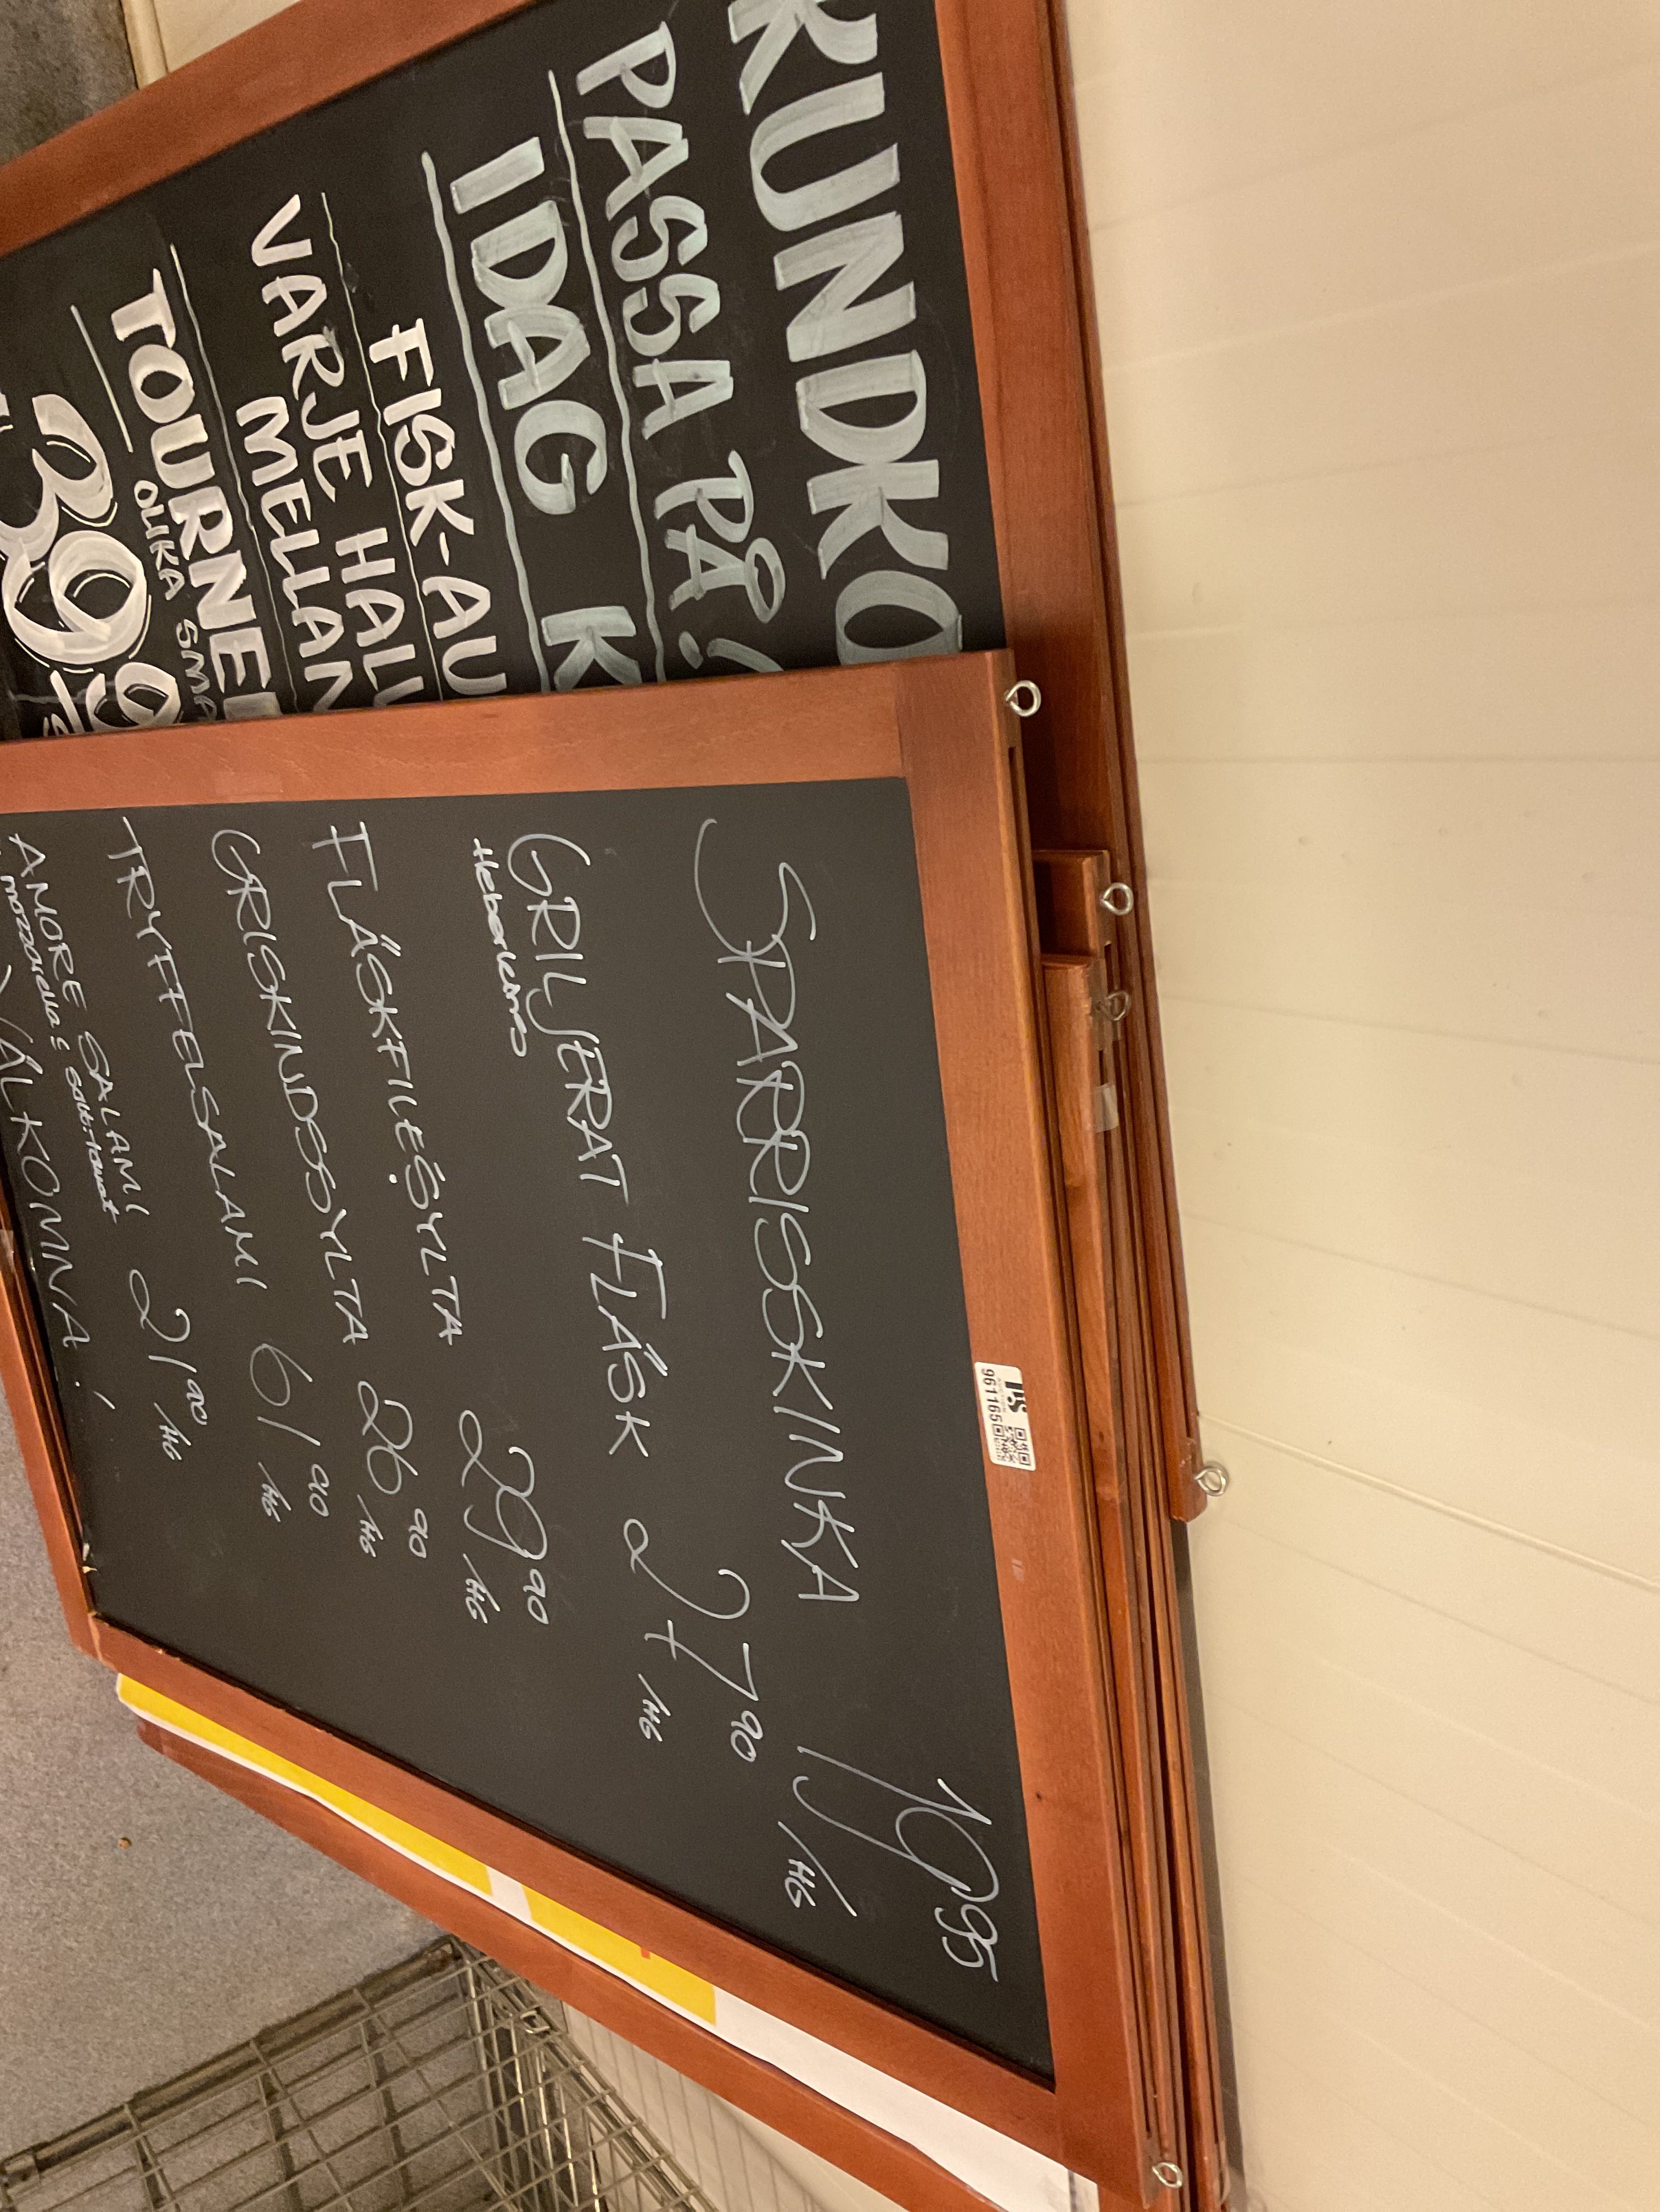 KUNDKO
PASSA PÅ!
IDAG K
FISK-AU
VARJE HALV
MELLAN
TOURNE
OLIKA SMA
39 9
SPARRISSKINKA 19 95 /HG
GRILJERAT FLÄSK 27 90 /HG
FLÄSKFILESYLTA 29 90 /HG
GRISKINDSSYLTA 26 90 /HG
TRYFFELSALAMI 61 90 /HG
AMORE SALAMI 21 90 /HG
mozzarella & solt.tomat
VÄLKOMNA!
PS
961165